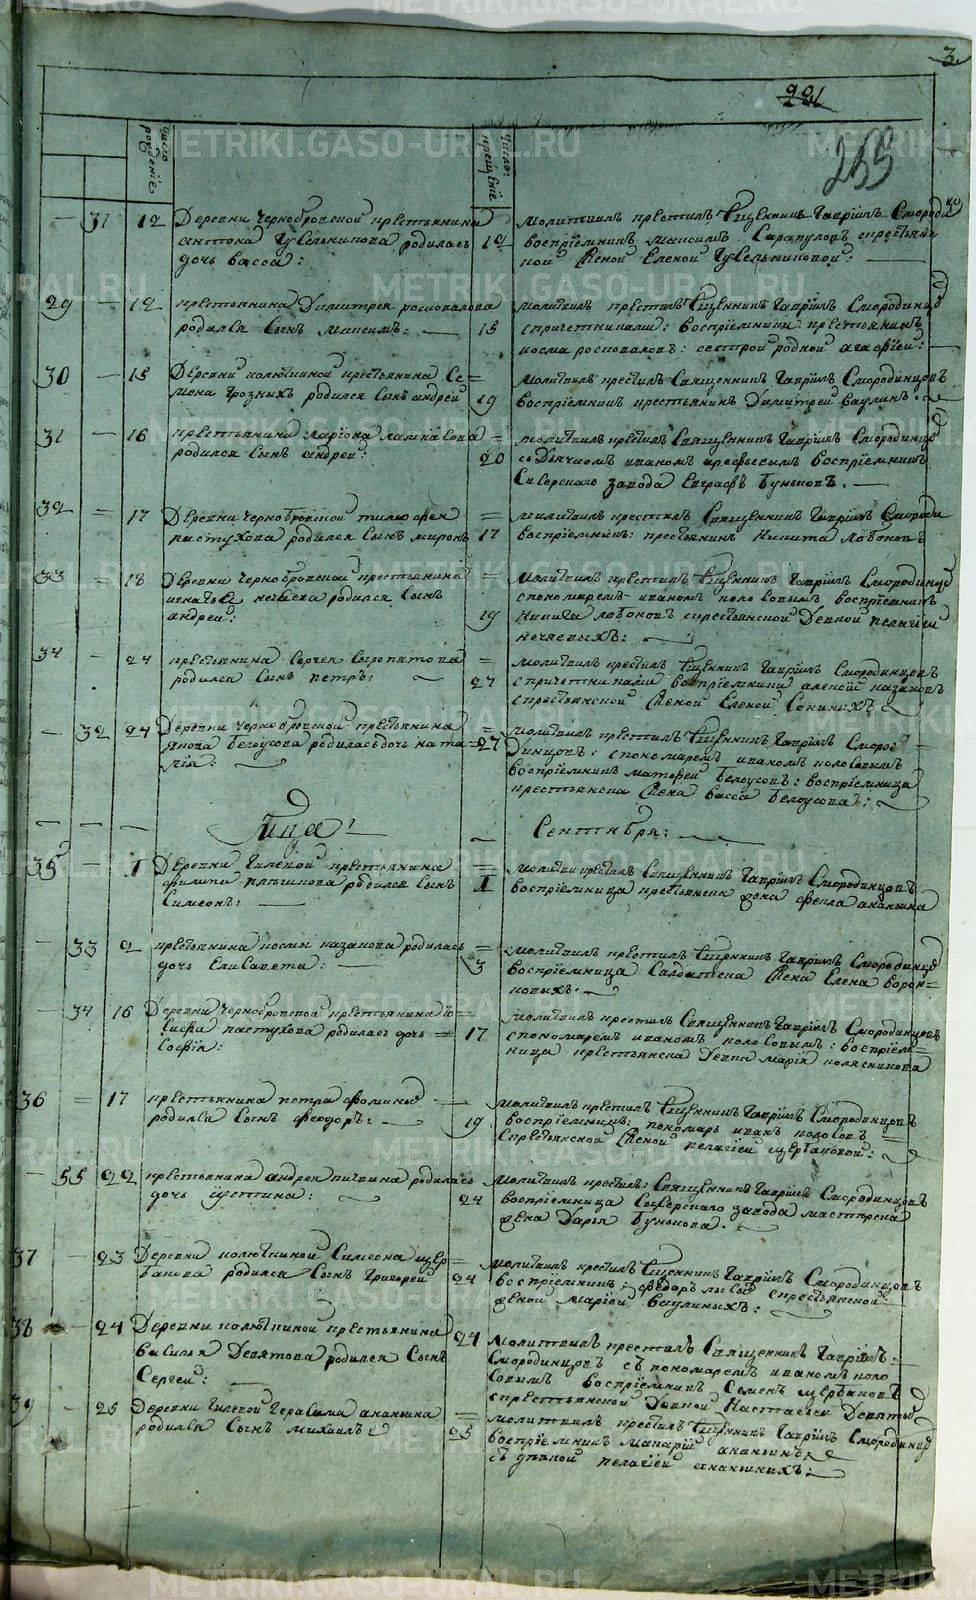 3.
221
265
Число рождение
Число: крещение
31 12 Деревни Чернобровской крестьянина
родилась
дочь васса:
12 молитвил крестил Священник Гаврiил Смородин
воспрiемник максим Сарапулов с крестьян
ской женой Еленой
29 12 крестьянина Димитрея росковалова
родился Сын максим:
15 молитвил крестил Священник Гаврiил Смородинцов
с причетниками: воспрiемники крестьянин
косма росковалов: сестрой родной агафiеи:
30 15 Деревни колюткиной крестьянина Се
мена грозных родился Сын андреи
19 молитвил крестил Священник Гаврiил Смородинцовъ
воспрiемник крестьянин Димитреи ваулин:
31 16 крестьянина лариона
родился Сын андреи:
20 молитвил крестил Священник Гаврiил Смородинцо
съ Дьячком иваном арефьевым воспрiемник
Сысерскаго завода Евграф Буньков.
32 17 Деревни Чернобровской тимофея
пастухова родился Сынъ миронъ
17 молитвил крестил Священник Гаврiил Смороди
воспрiемник: крестьянин Никита лобонов
33 18 Деревни Чернобровской крестьянина
игнатья нечаева родился Сынъ
андреи:
19 молитвил крестил Священник Гаврiил Смородинцо
с пономарем иваном колосовым воспрiемник
Никита лобонов с крестьянской Девкой пелагiеи
нечаевых:
34 24 крестьянина Сергея Сыропятова
родился Сынъ петръ:
27 молитвил крестил Священник Гаврiил Смородинцовъ
с причетниками воспрiемники алексiй казаков
с крестьянской женой Еленой
32 24 Деревни Чернобровской крестьянина
якова белоусова родилась дочь наталiя:
27 молитвил крестил Священник Гаврiил Смородинцов: с пономарем иваном колосовым
воспрiемник матфеи Белоусов: воспрiемница
крестьянска жена васса Белоусова:
Сентября:
35 1 Деревни крестьянина
филипа плешкова родился Сынъ
Симеонъ:
1 молитвил крестил Священник Гаврiил Смородинцовъ
воспрiемница крестьянска жена фекла ананьина
33 2 крестьянина космы казакова родилась
дочь Елисавета:
3 молитвил крестил Священник Гаврiил Смородинцо
воспрiемница Салдатска жена Елена
34 16 Деревни Чернобровской крестьянина Iо
сифа пастухова родилась дочь
Софiя:
17 молитвил крестил Священник Гаврiил Смородинцовъ
с пономарем иваном колосовым: воспрiем
ница крестьянска Девка марiя колясникова
36 17 крестьянина петра
родился Сынъ феодоръ:
19 молитвил крестил Священник Гаврiил Смородинцовъ
воспрiемник: пономарь иван колосов
с крестьянской женой пелагiеи щербаковой:
55 22 крестьянина андрея пичкина родилась
дочь iустина:
24 молитвил крестил: Священник Гаврiил Смородинцов
воспрiемница Сысерскаго завода мастерска
жена Дарья Бунькова.
37 23 Деревни колюткиной Симеона щер
бакова родился Сынъ григореи
24 молитвил крестил Священник Гаврiил Смородинцовъ
воспрiемник: федор с крестьянской
женой марiеи ваулиных:
38 24 Деревни колюткиной крестьянина
василья Девятова родился Сынъ
Сергеи:
24 молитвил крестил Священник Гаврiил:
Смородинцов с пономарем иваном коло
совым воспрiемник Семен щербаков
с крестьянской Девкой Настасьеи Девятов
39 25 Деревни герасима ананьина
родился Сынъ михаил:
25 молитвил крестил Священник Гаврiил Смородинцо
воспрiемник макарiй ананьинъ
съ девкой пелагiеи ананьиных:
METRIKI.GASO-URAL.RU